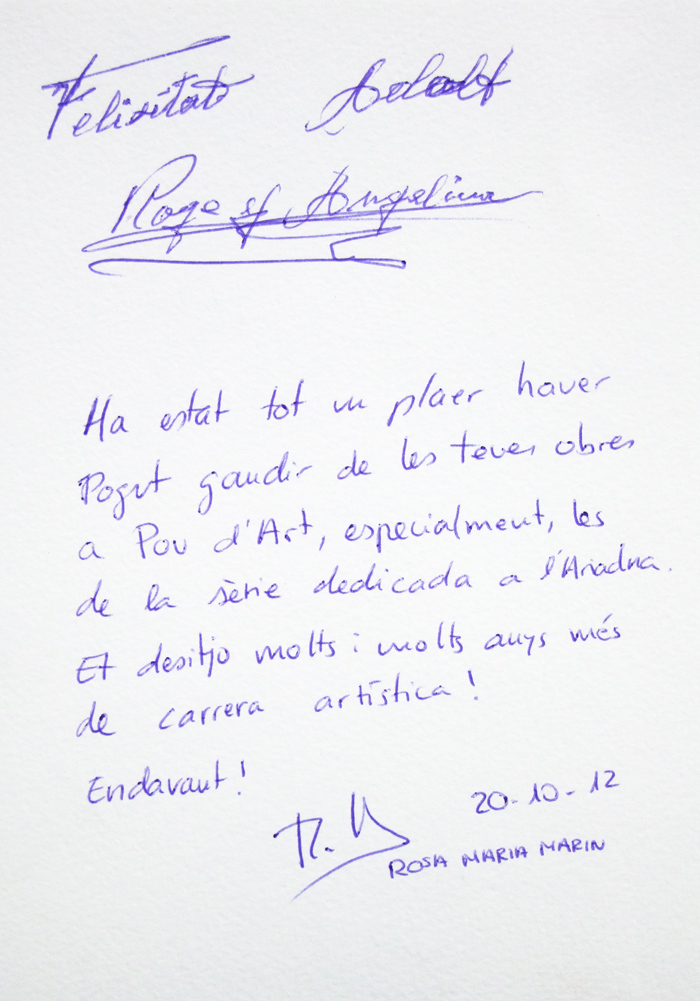 Felicitats Adolf
Roge of Angelina
Ha estat tot un plaer haver
Pogut gaudir de les teves obres
a Pou d'Art, especialment, les
de la sèrie dedicada a l'Ariadna.
Et desitjo molts i molts anys més
de carrera artística!
Endavant!
20-10-12
R.M
ROSA MARIA MARIN